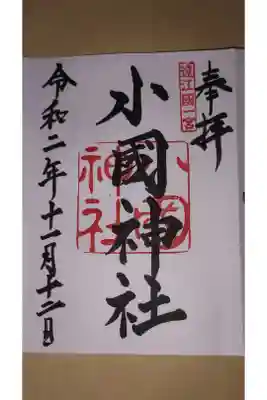 奉拝
遠江國一宮
小國神社
小國神社
令和二年十一月十二日